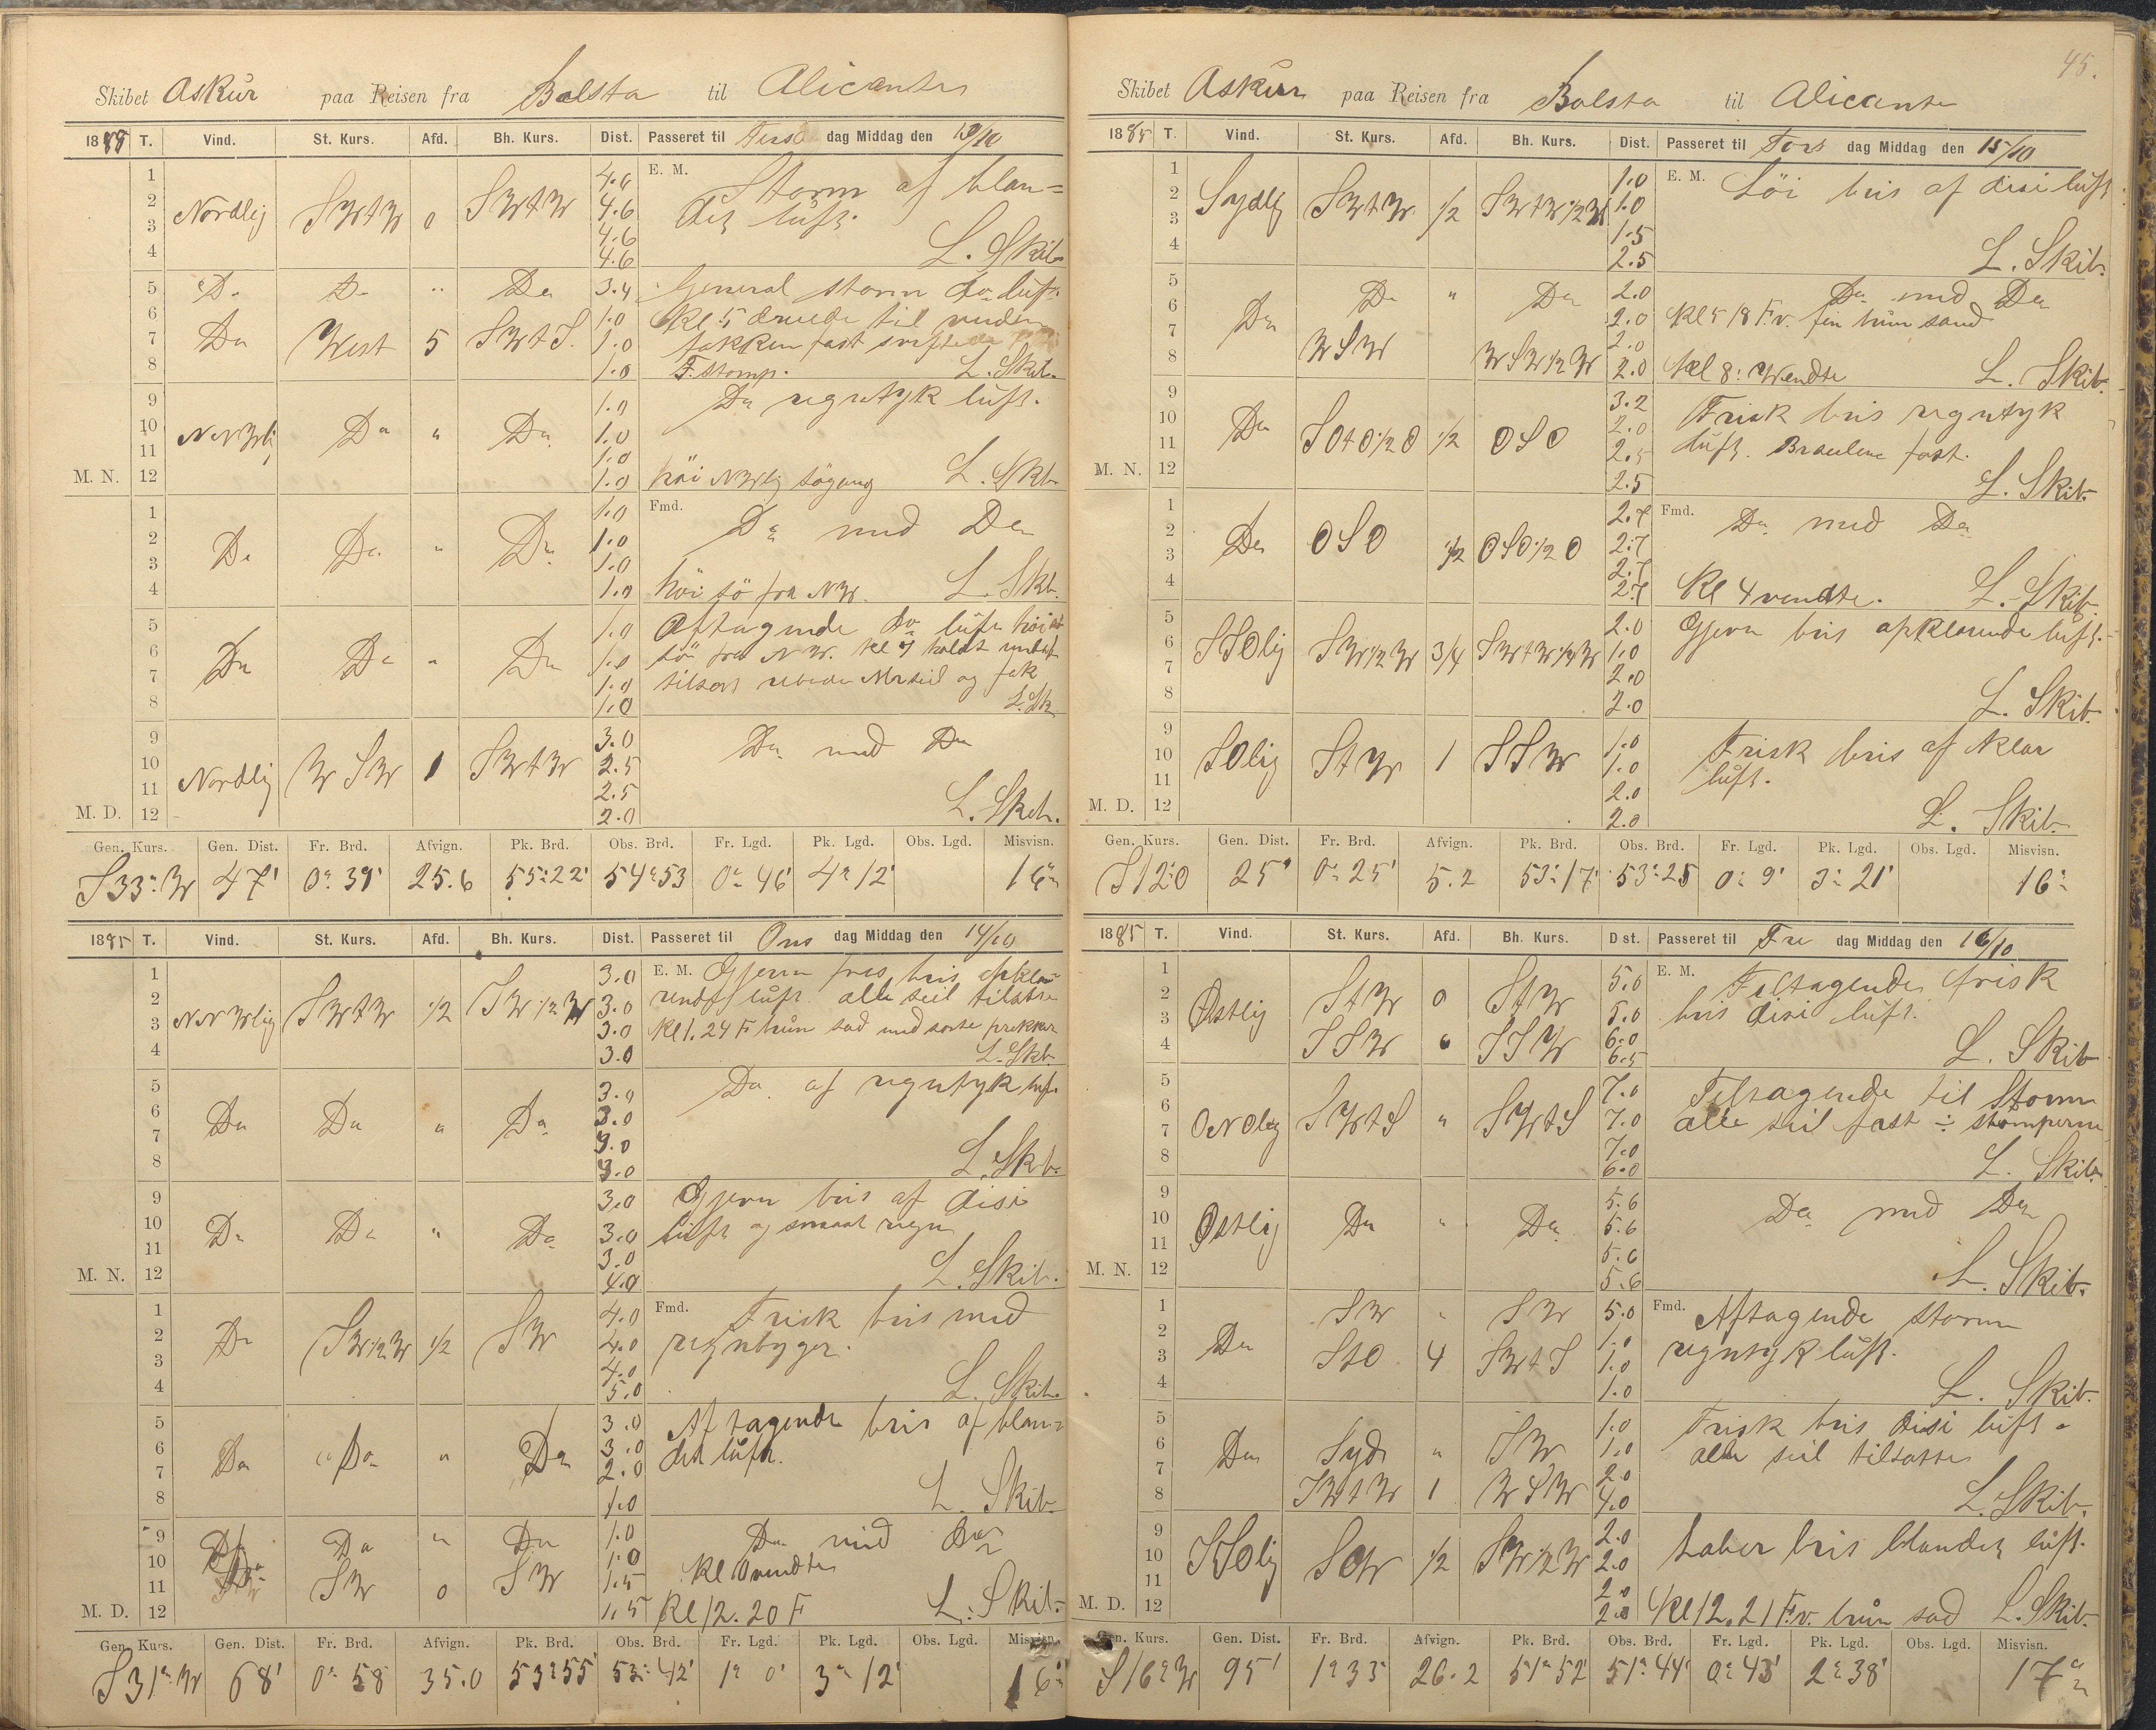 Skibet Askur paa Reisen fra Balsta til Alicante
1885 T. Vind. St. Kurs. Afd. Bh. Kurs. Dist. Passeret til Tirs dag Middag den 13/10
1 4.6 E. M. Storm af blan=
2 Nordlig SWtW 0 SWtW 4.6 det luft.
3 4.6
4 4.6 L. Skib.
5 Do Do " Do 3.4 General storm do luft.
6 1.0 Kl 5 dreiede til vinden
7 Do West 5 SWtS. 1.0 fokken fast
8 1.0 F. stomp. L. Skib.
9 1.0 Do regntyk luft.
10 NNWlig Do " Do 1.0
11 1.0
M. N. 12 1.0 höi NWlig sögang L. Skb.
1 1.0 Fmd. Do med Do
2 Do Do " Do 1.0
3 1.0
4 1.0 höi sö fra NW. L. Skb.
5 1.0 Aftagende do luft höi
6 Do Do " Do 1.0 sö fra NW. Kl 7 holdt
7 1.0 og fok
8 1.0 L. Sk
9 3.0 Do med Do
10 Nordlig WSW 1 SWtW 2.5
11 2.5
M. D. 12 2.0 L. Skib.
Gen. Kurs. Gen. Dist. Fr. Brd. Afvign. Pk. Brd. Obs. Brd. Fr. Lgd. Pk. Lgd. Obs. Lgd. Misvisn.
S33°W 47' 0° 39' 25.6 55° 22' 54° 53 0° 46' 4° 12' 16°
1885 T. Vind. St. Kurs. Afd. Bh. Kurs. Dist. Passeret til Ons dag Middag den 14/10
1 3.0 E. M. Gjevn bris opkla-
2 NNWlig SWtW 1/2 SW1/2W 3.0 rende luft alle seil tilsatte
3 3.0 Kl 1. 24 F brün sad med sorte prikker
4 3.0 L. Skb.
5 3.0 Do af regntyk luft
6 Do Do " Do 3.0
7 3.0
8 3.0 L. Skb.
9 3.0 Gjevn bris af disi
10 Do Do " Do 3.0 luft og smaat regn
11 3.0
M. N. 12 4.0 L. Skib.
1 4.0 Fmd. Frisk bris med
2 Do SW1/2W 1/2 SW 4.0 regnbyger.
3 4.0
4 5.0 L. Skib.
5 3.0 Aftagende bris af blan=
6 Do Do " Do 3.0 det luft.
7 2.0
8 1.0 L. Skib.
9 Do Do " Do 1.0 Do med Do
10 Do 1.0 Kl vendte
11 SW 0 SW 1.5
M. D. 12 1.5 Kl 12. 20 F L. Skib.
Gen. Kurs. Gen. Dist. Fr. Brd. Afvign. Pk. Brd. Obs. Brd. Fr. Lgd. Pk. Lgd. Obs. Lgd. Misvisn.
S31°W 68' 0° 58 35.0 53° 55' 53° 42' 1° 0' 3° 12' 16°
45.
Skibet Askur paa Reisen fra Balsta til Alicante
1885 T. Vind. St. Kurs. Afd. Bh. Kurs. Dist. Passeret til Tors dag Middag den 15/10
1 1.0 E. M. Löi bris af disi luft
2 Sydlig SWtW 1/2 SWtW1/2W 1.0
3 1.5
4 2.5 L. Skib.
5 Do " Do 2.0 Do med Do
6 Do 2.0 Kl 5 18 F.v. fin brün sand
7 WSW WSW1/2W 2.0
8 2.0 Kl 8: Wendte L. Skib.
9 3.2 Frisk bris regntyk
10 Do SOtO1/2O 1/2 OSO 2.0 luft. Braulene fast.
11 2.5
M. N. 12 2.5 L. Skib.
1 2.7 Fmd. Do med Do
2 Do OSO 1/2 OSO1/2O 2.7
3 2.7
4 2.7 Kl 4 vendte. L. Skib.
5 2.0 Gjevn bris opklarende luft.
6 SSOlig SW1/2W 3/4 SWtW1/4W 1.0
7 2.0
8 2.0 L. Skib.
9 1.0 Frisk bris af klar
10 SOlig StW 1 SSW 1.0 luft.
11 2.0
M. D. 12 2.0 L. Skib.
Gen. Kurs. Gen. Dist. Fr. Brd. Afvign. Pk. Brd. Obs. Brd. Fr. Lgd. Pk. Lgd. Obs. Lgd. Misvisn.
S12°O 25' 0° 25' 5.2 53° 17' 53° 25 0° 9' 3° 21' 16°
1885 T. Vind. St. Kurs. Afd. Bh. Kurs. Dist. Passeret til Fre dag Middag den 16/10
1 5.0 E. M. Tiltagende frisk
2 Østlig StW 0 StW 5.0 bris disi luft.
3 6.0
4 SSW 0 SSW 6.5 L. Skib
5 7.0 Tiltagende til Storm
6 ONOlig SWtS " SWtS 7.0 alle seil fast ÷ stomperne
7 7.0
8 6.0 L. Skib.
9 5.6 Do med Do
10 Østlig Do " Do 5.6
11 5.6
M. N. 12 5.6 L. Skib.
1 SW " SW 5.0 Fmd. Aftagende storm
2 Do 1.0 regntyk luft.
3 StO 4 SWtS 1.0
4 1.0 L. Skib.
5 1.0 Frisk bris disi luft.
6 Do Syd " SW 1.0 alle seil tilsatte
7 2.0
8 SWtW 1 WSW 4.0 L. Skib.
9 2.0 Laber bris blandet luft.
10 SSOlig 1/2 SW1/2W 2.0
11 2.0
M. D. 12 2.0 Kl 12. 21 F.v. brün sad L. Skib.
Gen. Kurs. Gen. Dist. Fr. Brd. Afvign. Pk. Brd. Obs. Brd. Fr. Lgd. Pk. Lgd. Obs. Lgd. Misvisn.
S16°W 95' 1° 33 26.2 51° 52' 51° 44' 0° 43' 2° 38' 17°